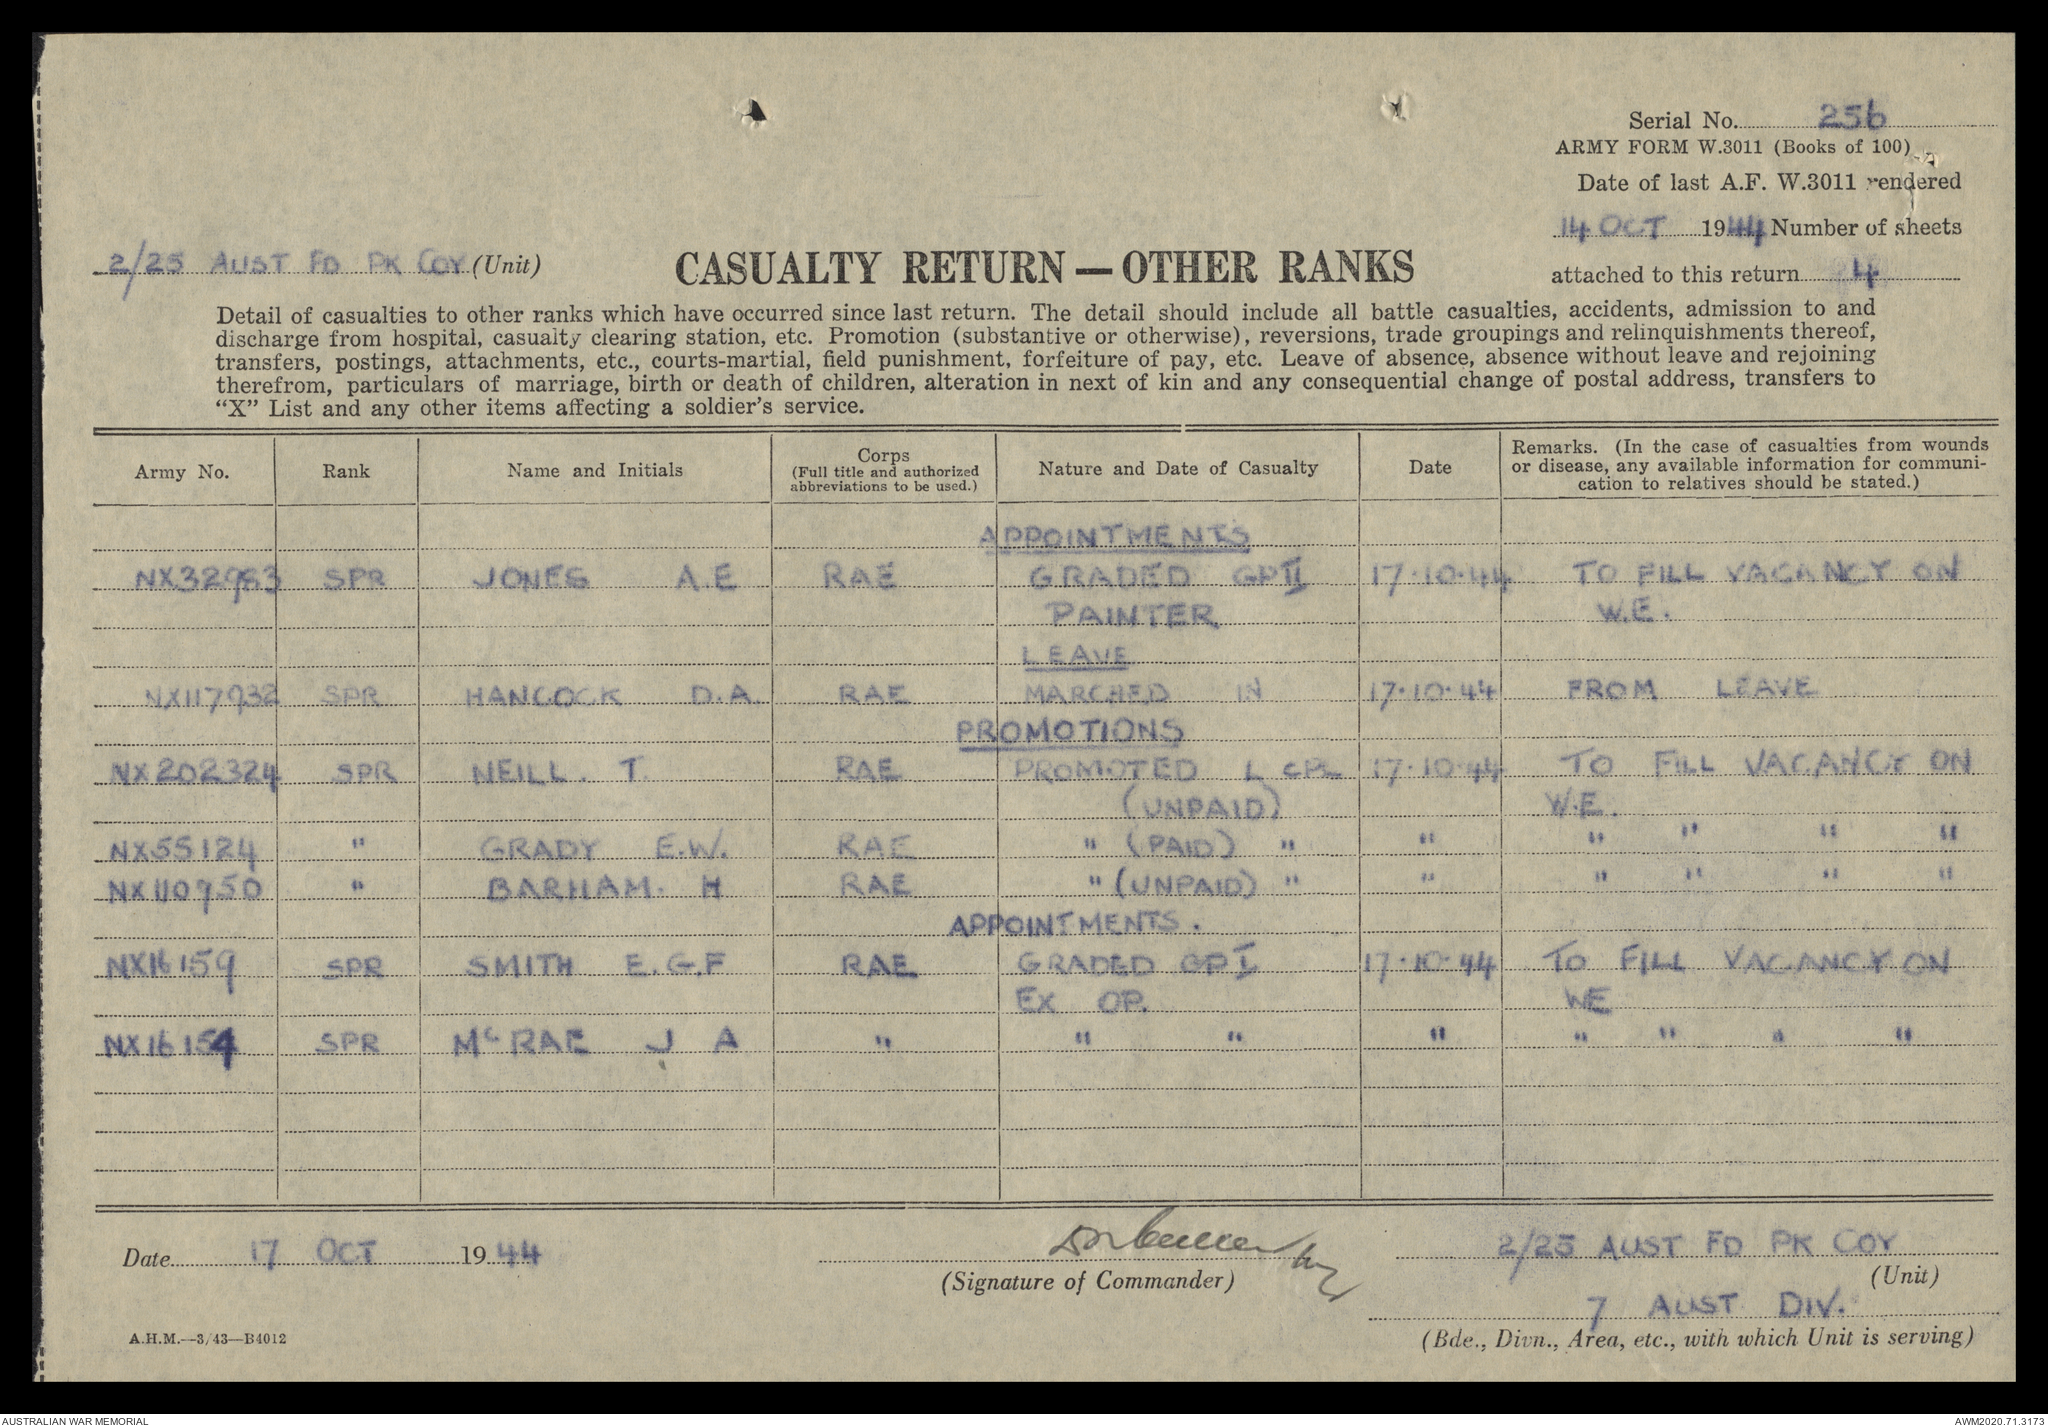 Serial No. 256
ARMY FORM W.3011 (Books of 100)
Date of last A.F. W.3011 rendered
14 OCT 1944 Number of sheets
attached to this return 4
2/25 AUST FD PK COY (Unit)
CASUALTY RETURN — OTHER RANKS
Detail of casualties to other ranks which have occurred since last return. The detail should include all battle casualties, accidents, admission to and
discharge from hospital, casualty clearing station, etc. Promotion (substantive or otherwise), reversions, trade groupings and relinquishments thereof,
transfers, postings, attachments, etc., courts-martial, field punishment, forfeiture of pay, etc. Leave of absence, absence without leave and rejoining
therefrom, particulars of marriage, birth or death of children, alteration in next of kin and any consequential change of postal address, transfers to
“X” List and any other items affecting a soldier’s service.
Army No. Rank Name and Initials Corps (Full title and authorized abbreviations to be used.) Nature and Date of Casualty Date Remarks. (In the case of casualties from wounds or disease, any available information for communi-cation to relatives should be stated.)
APPOINTMENTS
NX32953 SPR JONES A.E RAE GRADED GP II 17·10·44 TO FILL VACANCY ON
PAINTER W.E.
LEAVE
NX117932 SPR HANCOCK D.A. RAE MARCHED IN 17·10·44 FROM LEAVE
PROMOTIONS
NX202324 SPR NEILL. T. RAE PROMOTED L CPL 17·10·44 TO FILL VACANCY ON
(UNPAID) W.E.
NX55124 " GRADY E.W. RAE " (PAID) " " " " " "
NX110950 " BARHAM. H RAE " (UNPAID) " " " " " "
APPOINTMENTS.
NX16159 SPR SMITH E.G.F RAE GRADED GP I 17·10·44 TO FILL VACANCY ON
EX OP. WE
NX16154 SPR McRAE J A " " " " " " " "
Date 17 OCT 1944
(Signature of Commander)
2/25 AUST FD PK COY
(Unit)
7 AUST DIV.
(Bde., Divn., Area, etc., with which Unit is serving)
A.H.M.—3/43—B4012
AUSTRALIAN WAR MEMORIAL
AWM2020.71.3173